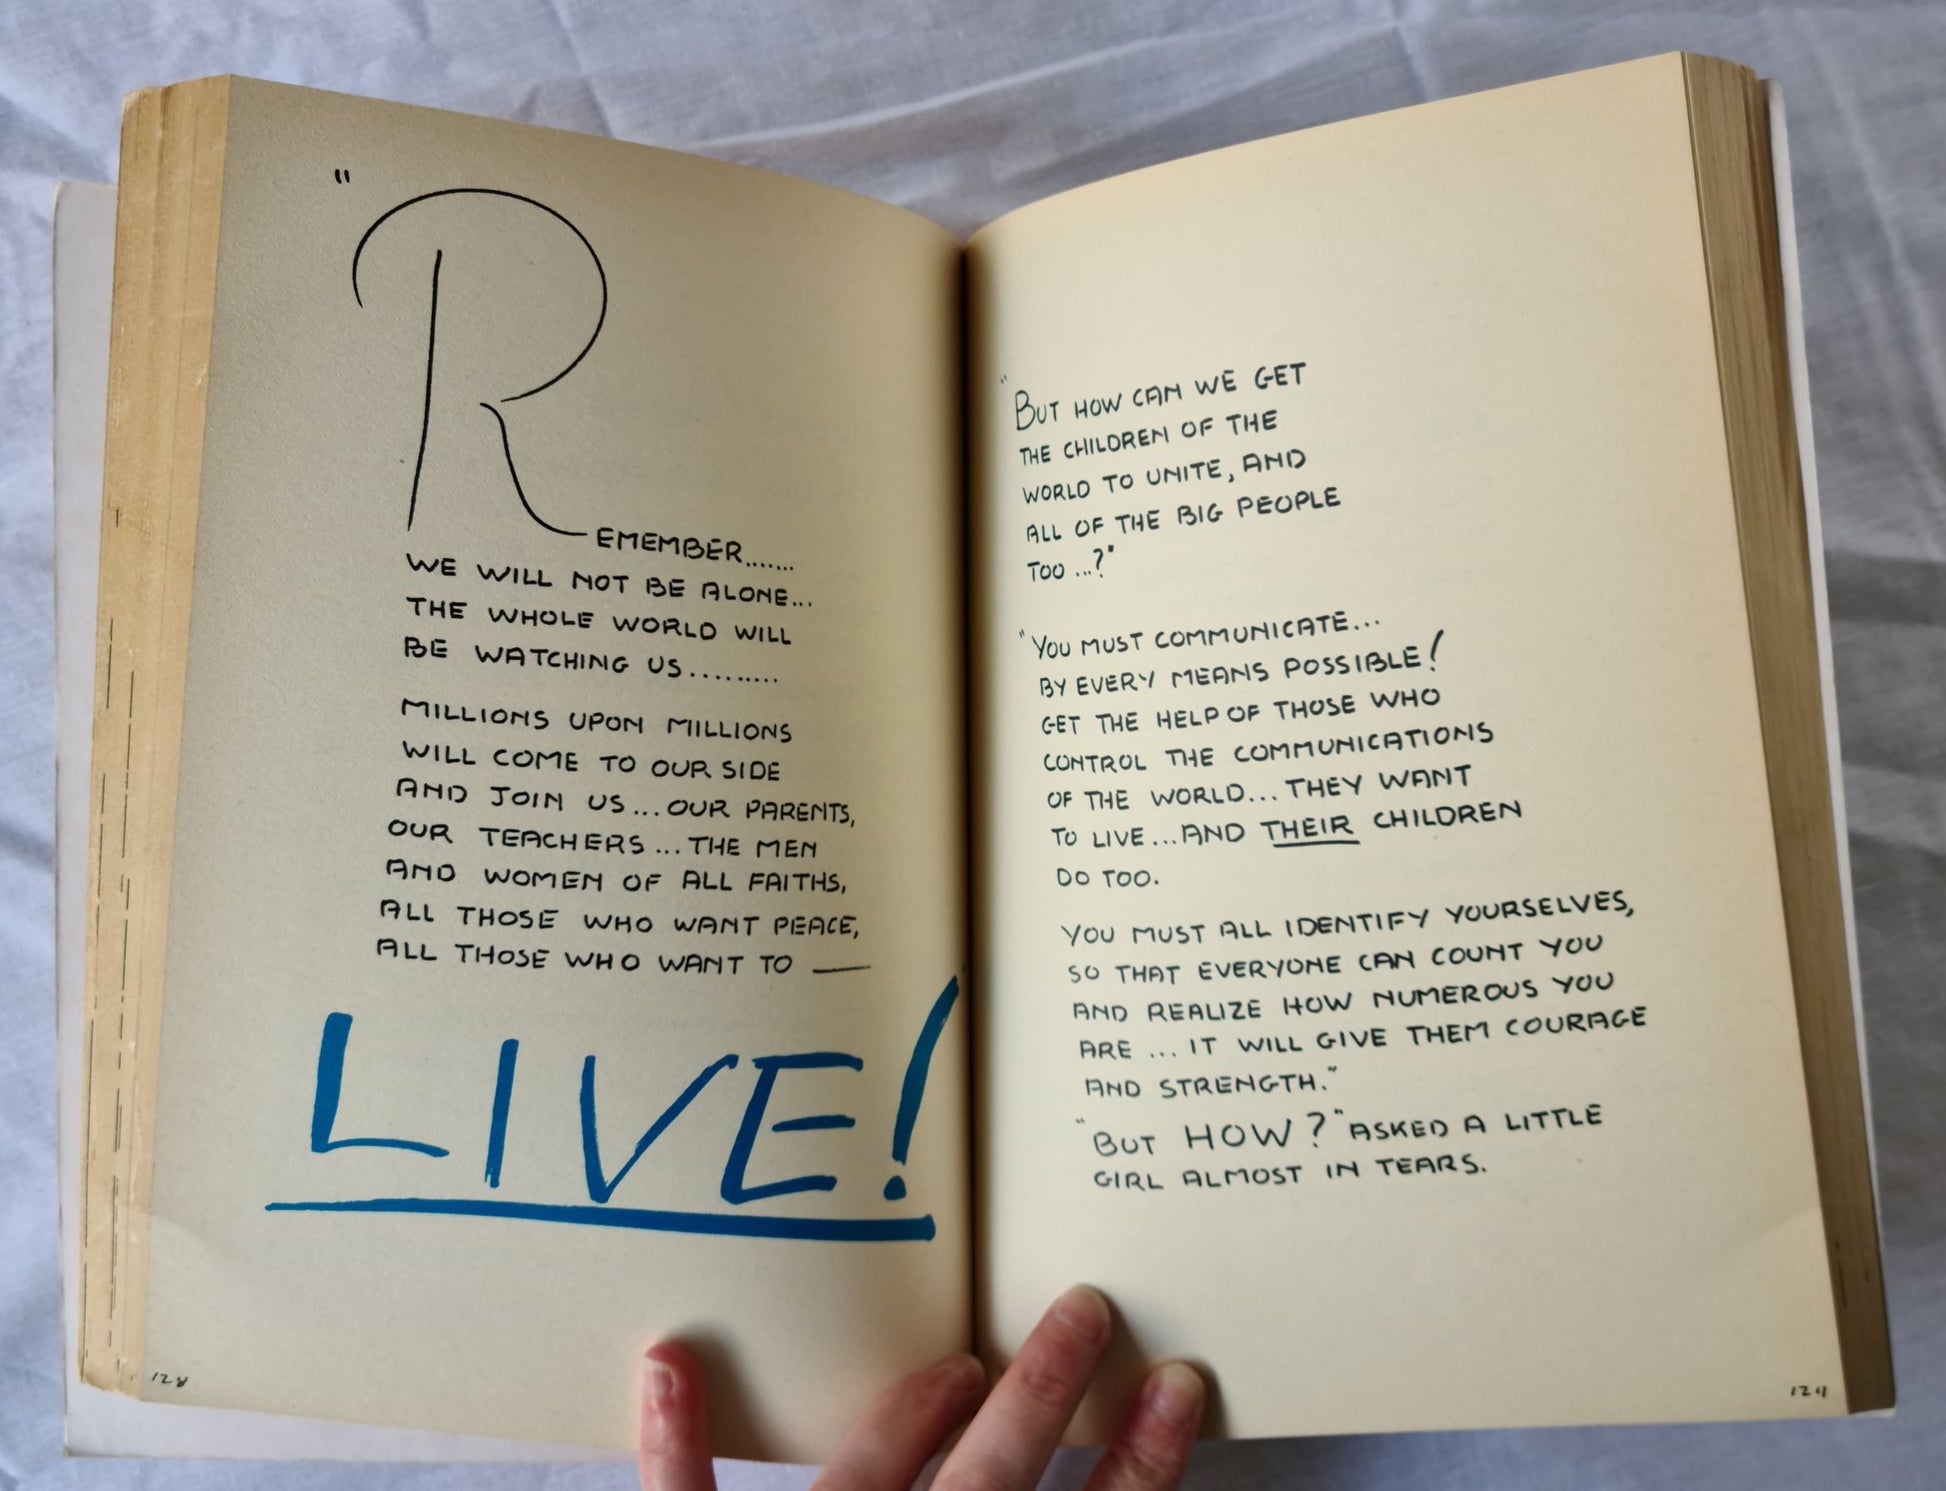 "REMEMBER.......
WE WILL NOT BE ALONE...
THE WHOLE WORLD WILL
BE WATCHING US.........
MILLIONS UPON MILLIONS
WILL COME TO OUR SIDE
AND JOIN US...OUR PARENTS,
OUR TEACHERS...THE MEN
AND WOMEN OF ALL FAITHS,
ALL THOSE WHO WANT PEACE,
ALL THOSE WHO WANT TO —
LIVE!
128
"BUT HOW CAN WE GET
THE CHILDREN OF THE
WORLD TO UNITE, AND
ALL OF THE BIG PEOPLE
TOO...?"
"YOU MUST COMMUNICATE...
BY EVERY MEANS POSSIBLE!
GET THE HELP OF THOSE WHO
CONTROL THE COMMUNICATIONS
OF THE WORLD...THEY WANT
TO LIVE...AND THEIR CHILDREN
DO TOO.
YOU MUST ALL IDENTIFY YOURSELVES,
SO THAT EVERYONE CAN COUNT YOU
AND REALIZE HOW NUMEROUS YOU
ARE ... IT WILL GIVE THEM COURAGE
AND STRENGTH."
"BUT HOW?" ASKED A LITTLE
GIRL ALMOST IN TEARS.
129